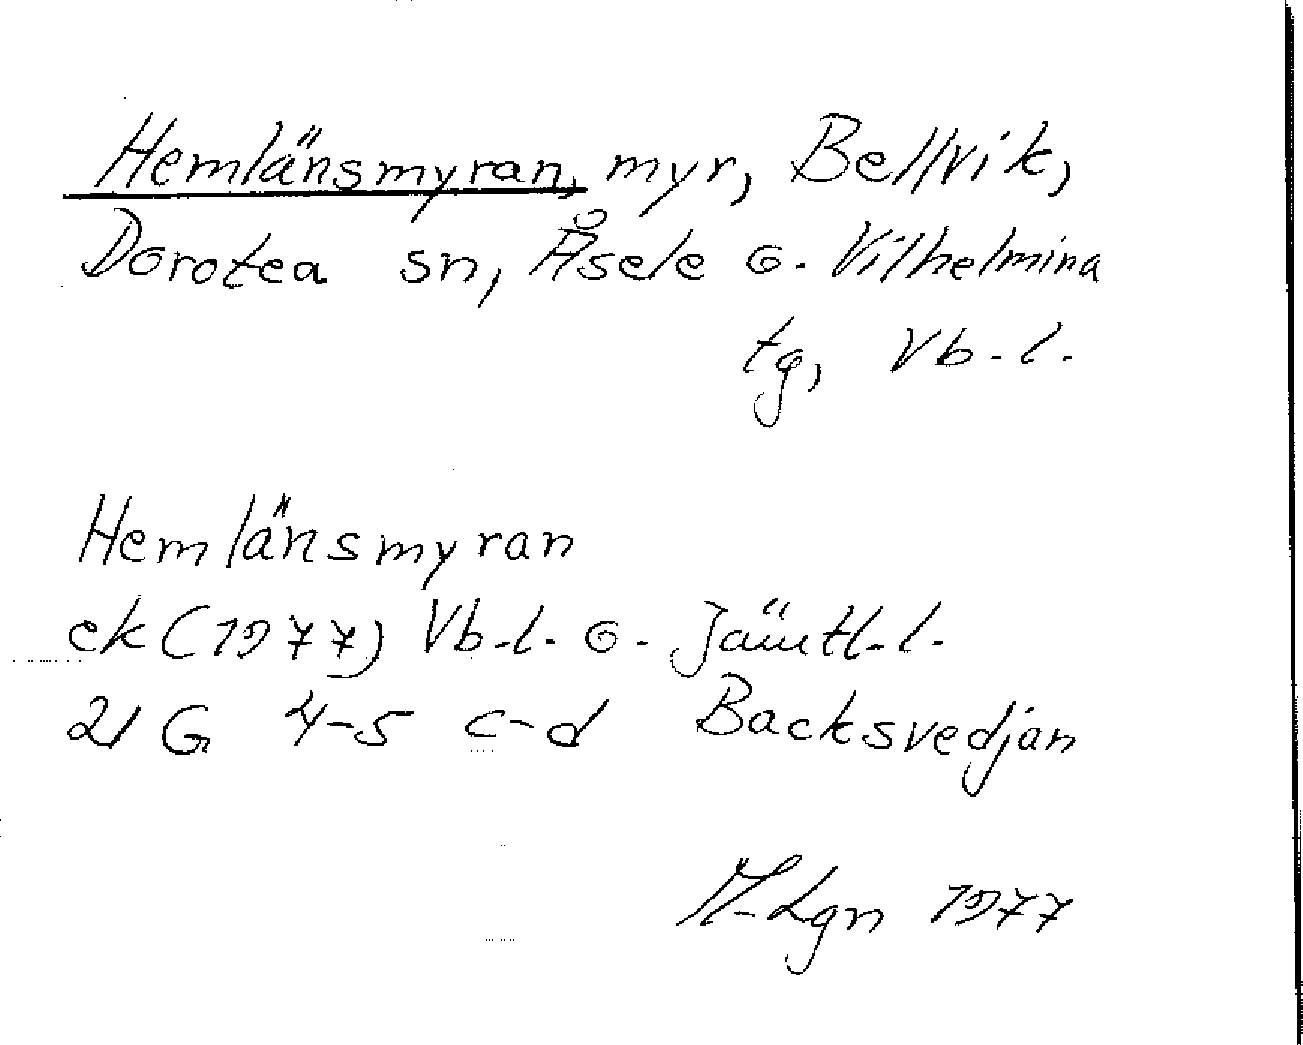 Hemlänsmyran, myr, Bellvik,
Dorotea sn, Åsele o. Vilhelmina
tg, Vb-l.
Hemlänsmyran
ek (1977) Vb-l. o. Jämtl-l.
21 G 4-5 c-d Backsvedjan
M-Lgn 1977